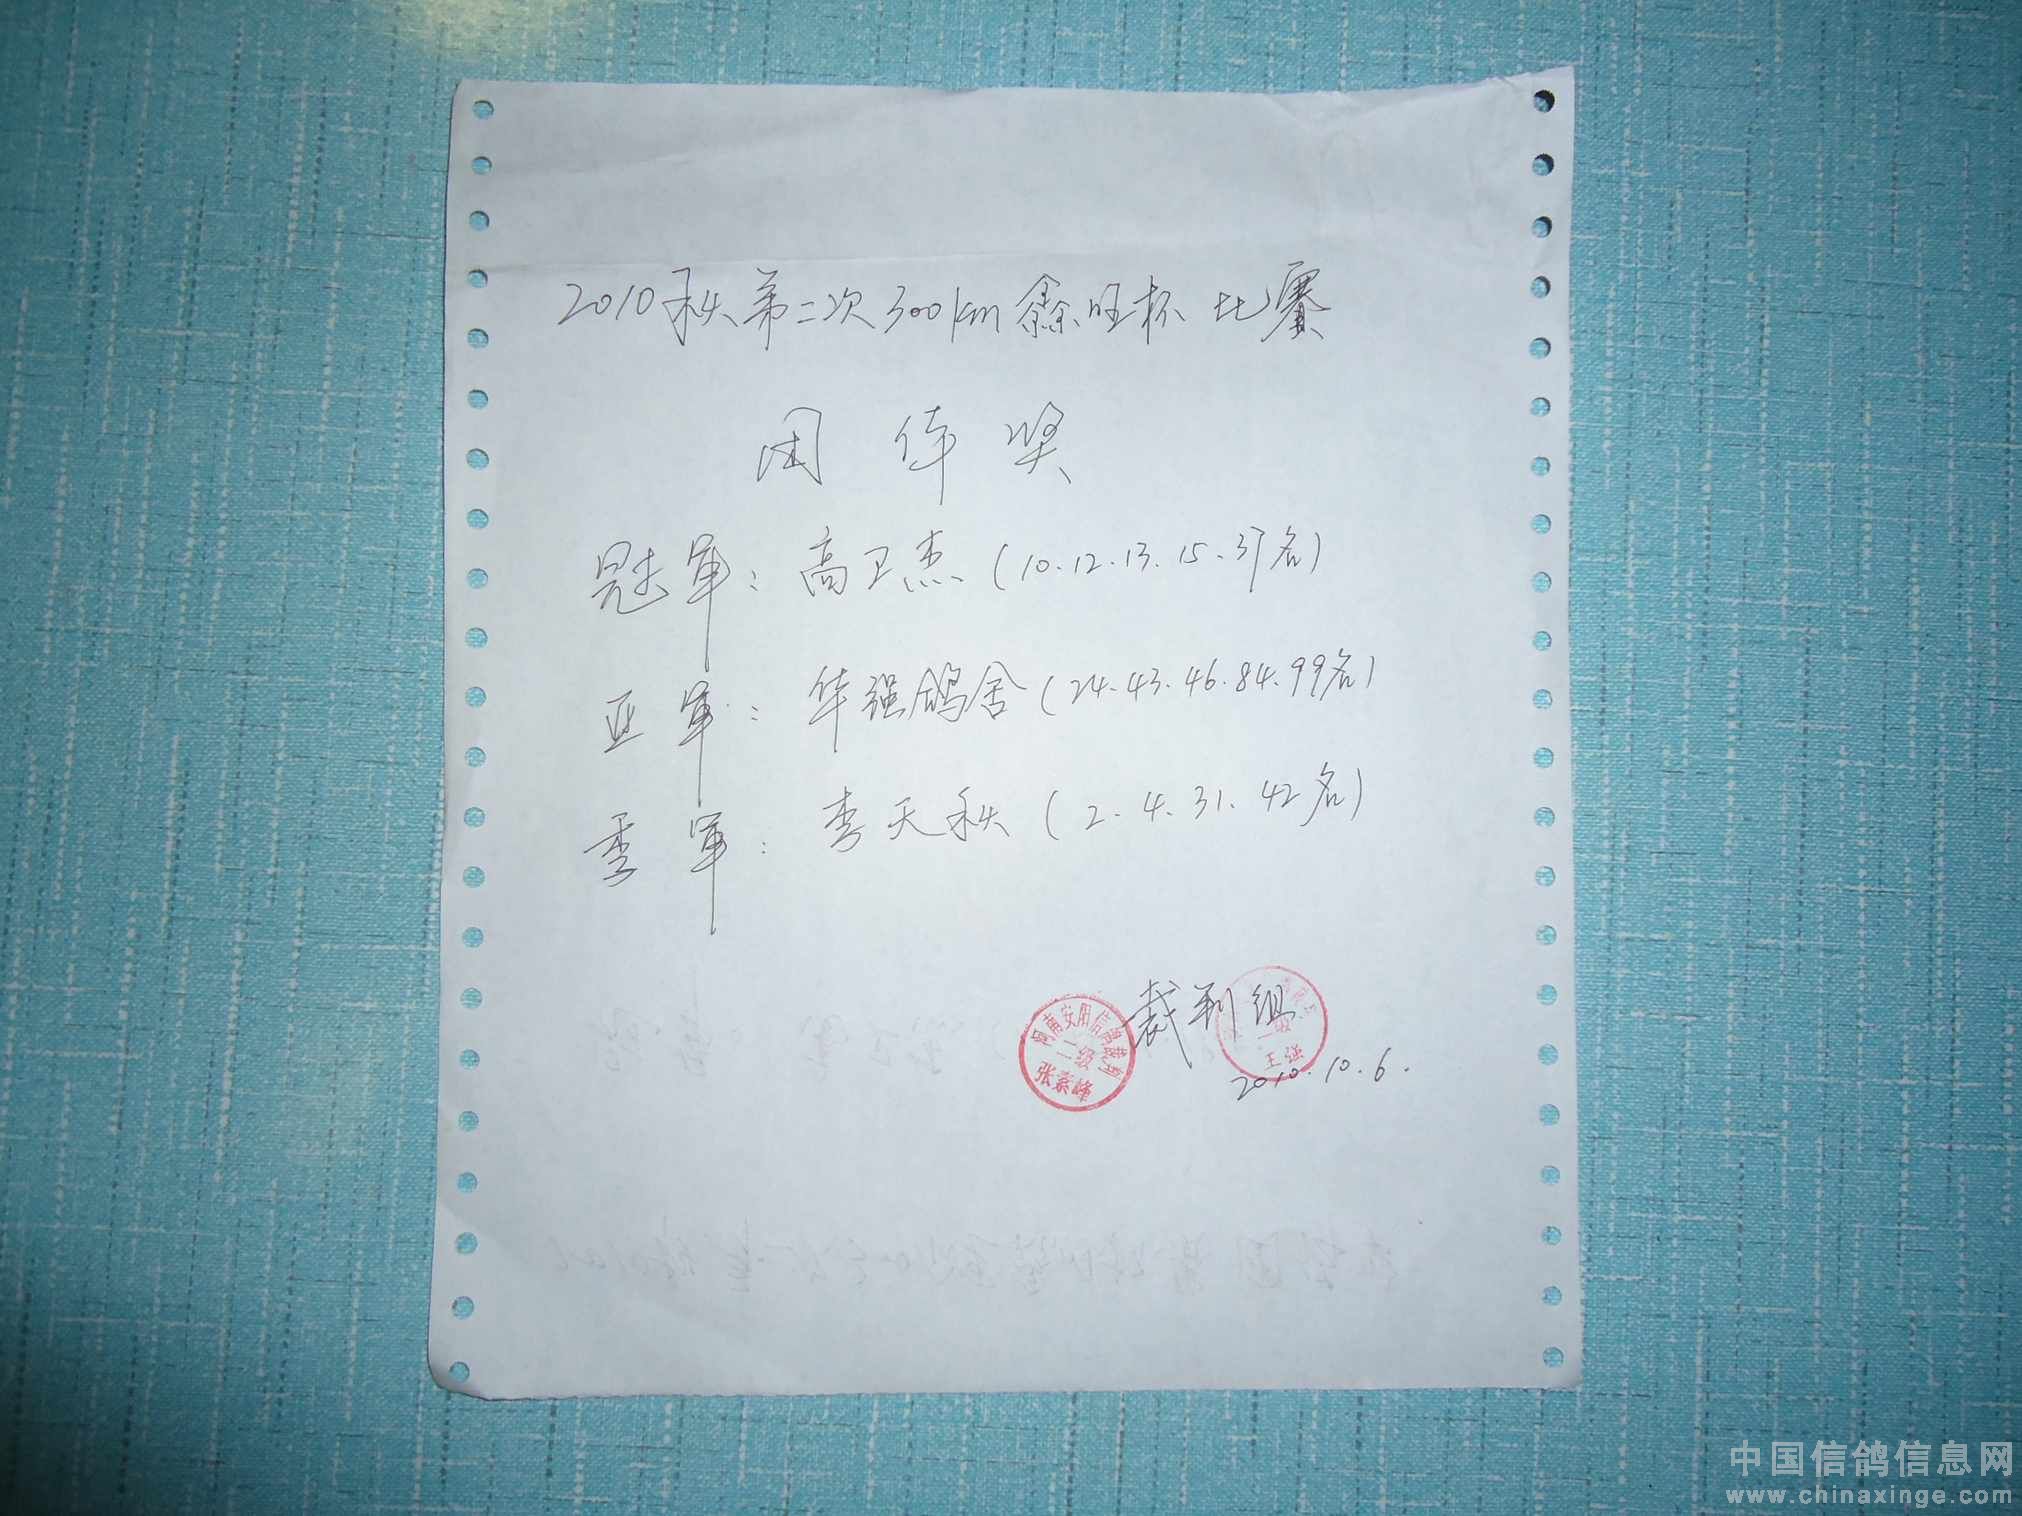 2010秋第二次300km鑫旺杯比赛
团体奖
冠军：高卫杰（10.12.13.15.37名）
亚军：华强鸽舍（24.43.46.84.99名）
季军：李天秋（2.4.31.42名）
裁判组
2010.10.6.
河南安阳信鸽裁判
二级
张素峰
二级
王强
中国信鸽信息网
www.chinaxinge.com